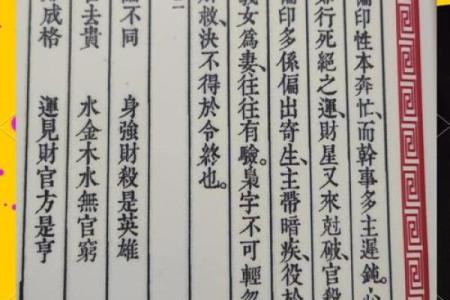 偏印性本奔忙、而幹事多主遲鈍。小
行死絕之運、財星又來尅破、官殺
偏印多係偏出寄生、主帶暗疾、役於
義女爲妻、往往有驗。梟字不可輕忽
解救、決不得於令終也。
二
不同　身強財殺是英雄
去貴　水金木水無官窮
成格　運見財官方是亨